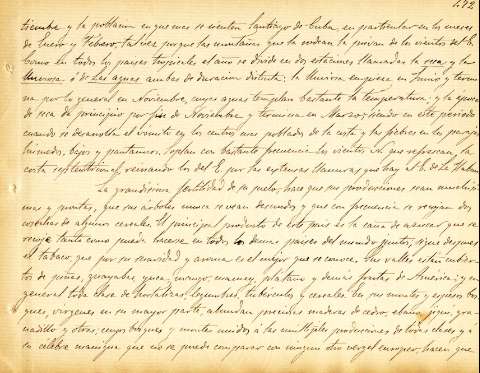 172
tiembre y la poblacion en que mas se sienten Santiago de Cuba, en particular en los meses
de Enero y Febrero, tal vez porque las montañas que la rodean la privan de los vientos del E.
Como en todos los paises tropicales el año se divide en dos estaciones llamadas la seca, y la
lluviosa, ó de Las aguas ambas de duracion distinta; la lluviosa empieza en Junio y termi
na por lo general en Noviembre, cuyas aguas templan bastante la temperatura; y la época
de seca da principio por fin de Noviembre y termina en Marzo, siendo en este periodo
cuando se desarrolla el vomito en los centros mas poblados de la costa y las fiebres en los parajes
húmedos, bajos y pantanosos. Soplan con bastante frecuencia los vientos que refrescan la
costa septentrional, reinando los del E. por las extensas llanuras que hay al E. de la Habana
La grandisima fertilidad de su suelo, hace que sus producciones sean muchisi
mas y prontas, que sus árboles nunca se vean desnudos y que con frecuencia se recojan dos
cosechas de algunos cereales. El principal producto de este pais es la caña de azucar que se
recoje tanto como pueda hacerse en todos los demas paises del mundo juntos, sigue despues
el tabaco, que por su suavidad y aroma es el mejor que se conoce. Sus valles están cubier
tos de piñas, guayabas, yuca, mango, mamey, plátano y demás frutas de América; y en
general toda clase de hortalizas, legumbres, tubérculos y cereales. En sus montes y espesos bos
ques, virgenes en su mayor parte, abundan preciosas maderas de cedro, ebano, gra
nadillo y otras, cuyos bosques y montes unidos á las multiples producciones de todas clases y á
su célebre manigua que no se puede comparar con ningun otro vergel europeo, hacen que